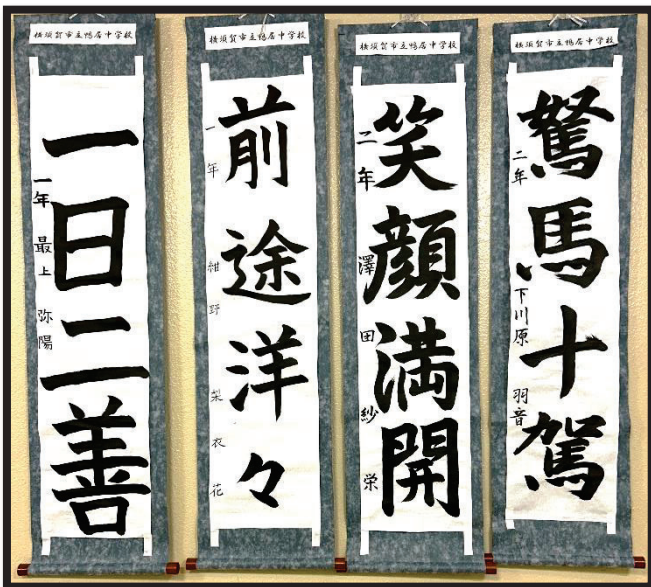 横須賀市立鴨居中学校
駑馬十駕
二年 下川原 羽音
横須賀市立鴨居中学校
笑顔満開
二年 澤田 紗栄
横須賀市立鴨居中学校
前途洋々
一年 野 梨衣花
横須賀市立鴨居中学校
一日二善
一年 最上 弥陽